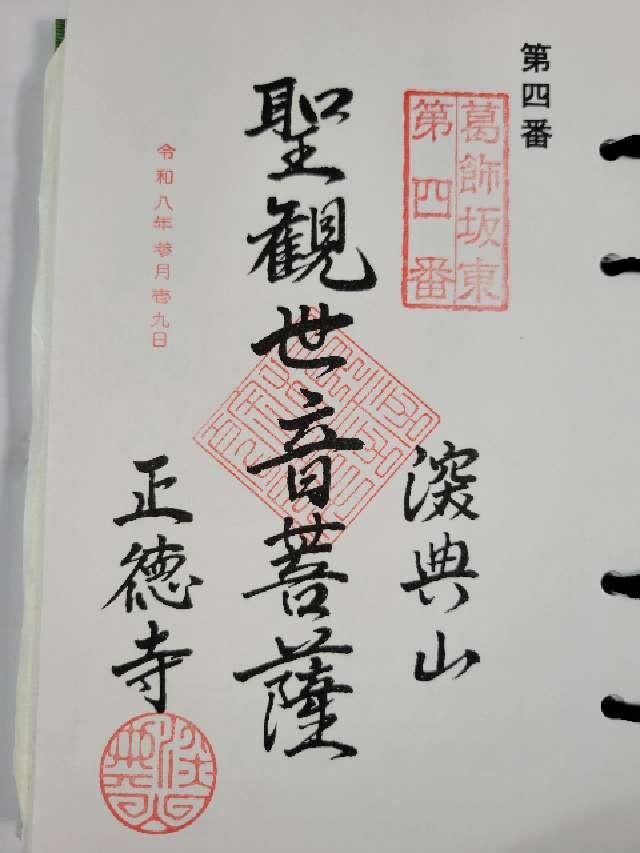 第四番
葛飾坂東
第四番
深典山
聖観世音菩薩
令和八年参月壱九日
正徳寺